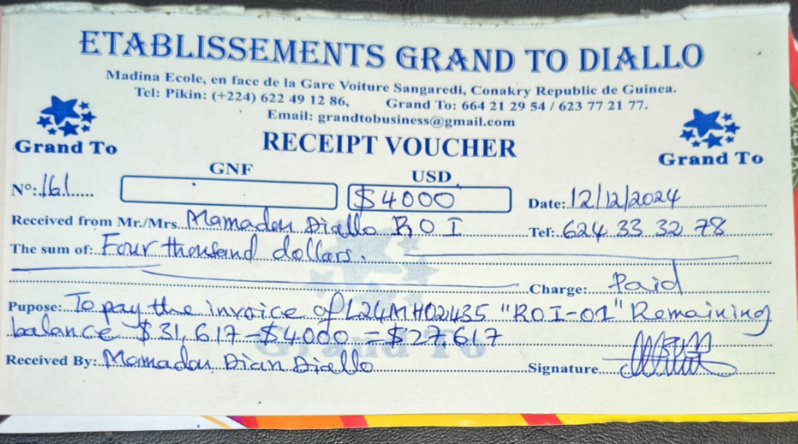 ETABLISSEMENTS GRAND TO DIALLO
Madina Ecole, en face de la Gare Voiture Sangaredi, Conakry Republic de Guinea.
Tel: Pikin: (+224) 622 49 12 86, Grand To: 664 21 29 54 / 623 77 21 77.
Email: grandtobusiness@gmail.com
Grand To
RECEIPT VOUCHER
Grand To
GNF USD
N°: 161 $4000 Date: 12/12/2024
Received from Mr./Mrs. Mamadou Diallo R O I Tel: 624 33 32 78
The sum of: Four thousand dollars.
Charge: Paid
Pupose: To pay the invoice of L24MH02435 "ROI-01" Remaining
balance $31,617-$4000 = $27,617
Grand To
Received By: Mamadou Dian Diallo Signature